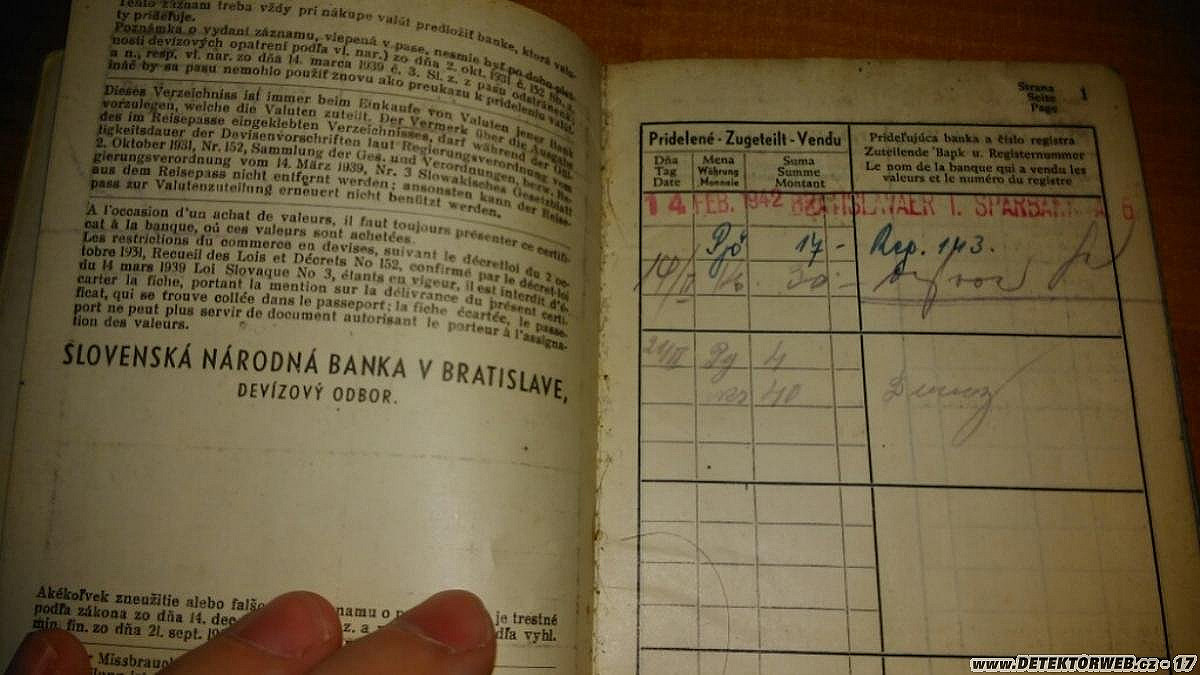 Tento záznam treba vždy pri nákupe valút predložiť banke, ktorá valu-
ty prideľuje.
Poznámka o vydaní záznamu, vlepená v pase, nesmie byť po dobu plat-
nosti devízových opatrení podľa vl. nar.) zo dňa 2. okt. 1931 č. 152 Sb. z.
a n., resp. vl. nar. zo dňa 14. marca 1939 č. 3. Sl. z. z pasu odstránená,
ináč by sa pasu nemohlo použiť znovu ako preukazu k prideleniu valút.
Dieses Verzeichniss ist immer beim Einkaufe von Valuten jener Bank
vorzulegen, welche die Valuten zuteilt. Der Vermerk über die Ausgabe
des im Reisepasse eingeklebten Verzeichnisses, darf während der Gül-
tigkeitsdauer der Devisenvorschriften laut Regierungsverordnung vom
2. Oktober 1931, Nr. 152, Sammlung der Ges. und Verordnungen, bezw. Re-
gierungsverordnung vom 14. März 1939, Nr. 3 Slowakisches Gesetzblatt
aus dem Reisepass nicht entfernt werden; ansonsten kann der Reise-
pass zur Valutenzuteilung erneuert nicht benützt werden.
A l'occasion d'un achat de valeurs, il faut toujours présenter ce certifi-
cat à la banque, où ces valeurs sont achetées.
Les restrictions du commerce en devises, suivant le décretloi du 2 oc-
tobre 1931, Recueil des Lois et Décrets No 152, confirmé par le décret-loi
du 14 mars 1939 Loi Slovaque No 3, étants en vigeur, il est interdit d'é-
carter la fiche, portant la mention sur la délivrance du présent certi-
ficat, qui se trouve collée dans le passeport; la fiche écartée, le passe-
port ne peut plus servir de document autorisant le porteur à l'assigna-
tion des valeurs.
SLOVENSKÁ NÁRODNÁ BANKA V BRATISLAVE,
DEVÍZOVÝ ODBOR.
Akékoľvek zneužitie alebo falšo
znamu o p
je trestné
podľa zákona zo dňa 14. dec
z. a
dľa vyhl.
min. fin. zo dňa 21. sept. 19
r Missbrauc
Strana
Seite
Page
1
Pridelené - Zugeteilt - Vendu
Prideľujúca banka a číslo registra
Zuteilende Bank u. Registernummer
Le nom de la banque qui a vendu les
valeurs et le numéro du registre
Dňa
Tag
Date
Mena
Währung
Monnaie
Suma
Summe
Montant
14 FEB. 1942 BRATISLAVAER I. SPARBANK
17 - Rep. 143.
30 -
4
40
www.DETEKTORWEB.cz - 17